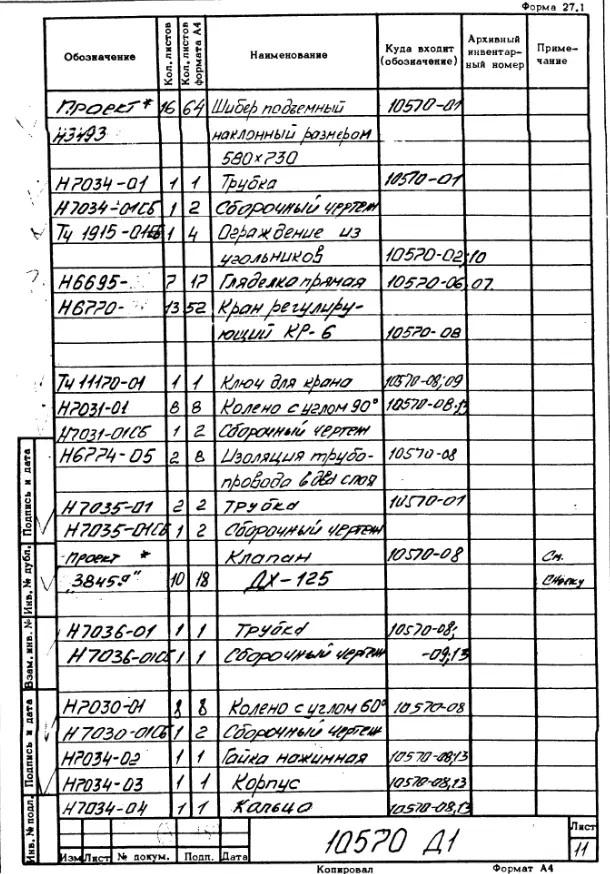 Форма 27.1
Обозначение Кол. листов Кол. листов формата А4 Наименование Куда входит (обозначение) Архивный инвентар-ный номер Приме-чание
Проект * 16 64 Шибер подъемный 10570-01
Н3493 наклонный размером
580×730
Н7034-01 1 1 Трубка 10570-01
Н7034-01СБ 1 2 Сборочный чертеж
ТЧ 1915-01СБ 1 4 Ограждение из
угольников 10570-02;10
Н6695- 7 17 Гляделка прямая 10570-06,07.
Н6770- 13 52 Кран регулиру-
ющий КР-6 10570-08
ТЧ 11170-01 1 1 Ключ для крана 10570-08;09
Н7031-01 8 8 Колено с углом 90° 10570-08,13
Н7031-01СБ 1 2 Сборочный чертеж
Н6774-05 2 8 Изоляция трубо- 10570-08
провода в два слоя
Н7035-01 2 2 Трубка 10570-01
Н7035-01СБ 1 2 Сборочный чертеж
Проект * Клапан 10570-08 См.
"38459" 10 18 ДХ-125 Сноску
Н7036-01 1 1 Трубка 10570-08;
Н7036-01СБ 1 1 Сборочный чертеж -09,13
Н7030-01 8 8 Колено с углом 60° 10570-08
Н7030-01СБ 1 2 Сборочный чертеж
Н7034-02 1 1 Гайка нажимная 10570-08,13
Н7034-03 1 1 Корпус 10570-08,13
Н7034-04 1 1 Кольцо 10570-08,13
Инв. № подл. Подпись и дата Взам. инв. № Инв. № дубл. Подпись и дата
Изм Лист № докум. Подп. Дата
10570 Д1
Лист
11
Копировал Формат А4